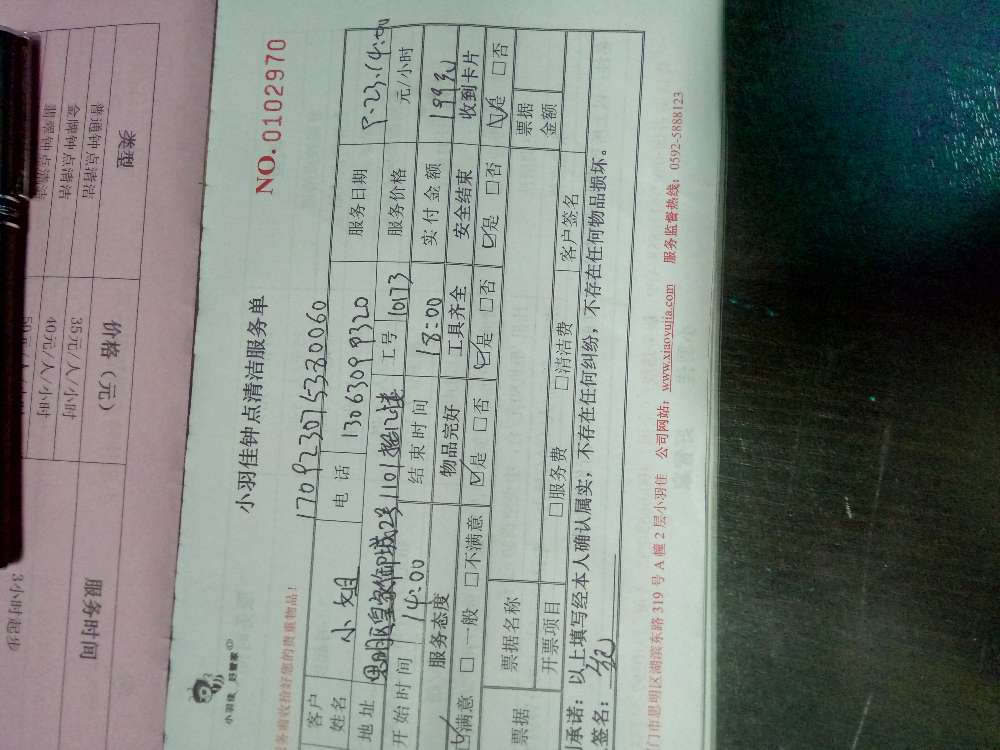 小羽佳 好管家
小羽佳钟点清洁服务单
NO. 0102970
务前收拾好您的贵重物品!
1709230715380060
客户姓名 小姐 电话 13063099320 服务日期 9.23.14:00
地址 思明区皇家御城2号1101 工号 10173 服务价格 元/小时
开始时间 14:00 结束时间 18:00 实付金额 199元
服务态度 物品完好 工具齐全 安全结束 收到卡片
☑满意 □一般 □不满意 ☑是 □否 ☑是 □否 ☑是 □否 ☑是 □否
票据 票据名称 票据金额
开票项目 □服务费 □清洁费 客户签名
承诺:以上填写经本人确认属实,不存在任何纠纷,不存在任何物品损坏。
签名:
门市思明区湖滨东路 319 号 A 幢 2 层小羽佳 公司网站:www.xiaoyujia.com 服务监督热线:0592-5888123
类型 价格(元) 服务时间
普通钟点清洁 35元/人/小时
金牌钟点清洁 40元/人/小时
3小时起步